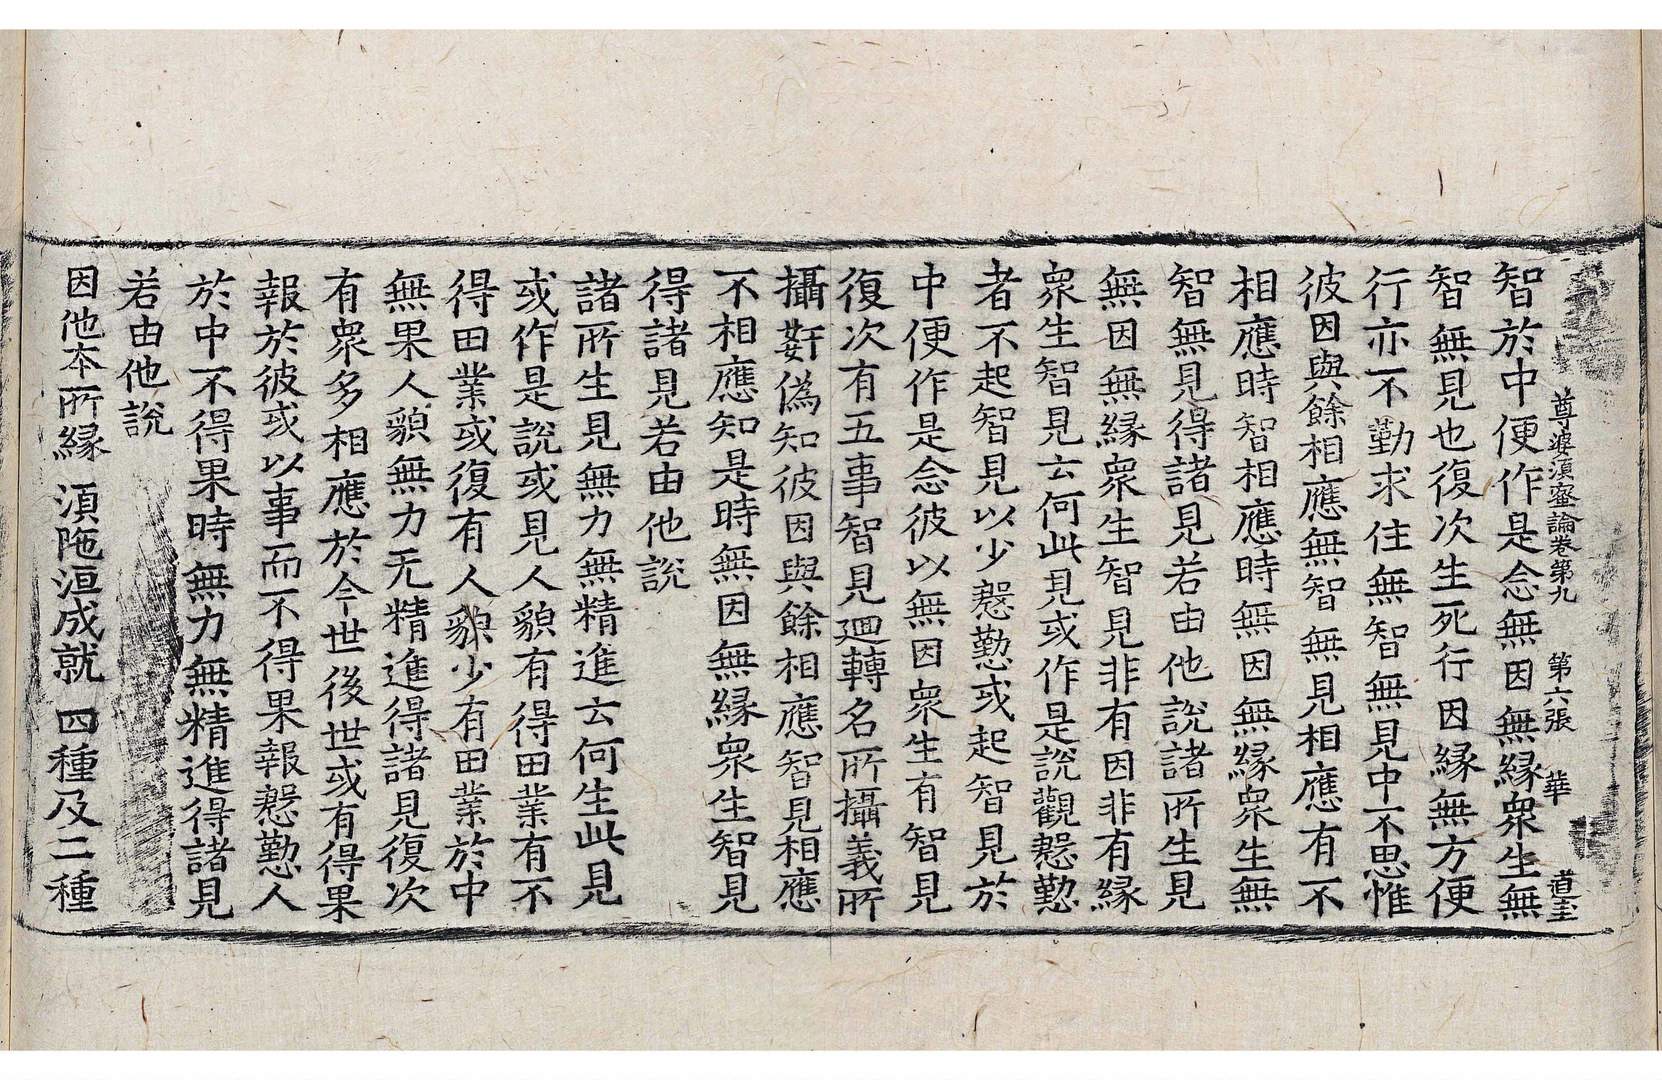 尊婆湏蜜論卷第九 第六張 華
智於中便作是念無因無縁衆生無
智無見也復次生死行因縁無方便
行亦不勤求住無智無見中不思惟
彼因與餘相應無智無見相應有不
相應時智相應時無因無縁衆生無
智無見得諸見若由他說諸所生見
無因無縁衆生智見非有因非有縁
衆生智見云何此見或作是說觀慇懃
者不起智見以少慇懃或起智見於
中便作是念彼以無因衆生有智見
復次有五事智見迴轉名所攝義所
攝姧偽知彼因與餘相應智見相應
不相應知是時無因無縁衆生智見
得諸見若由他說
諸所生見無力無精進云何生此見
或作是說或見人貌有得田業有不
得田業或復有人貌少有田業於中
無果人貌無力无精進得諸見復次
有衆多相應於今世後世或有得果
報於彼或以事而不得果報慇懃人
於中不得果時無力無精進得諸見
若由他說
因他本所縁 湏陁洹成就 四種及二種